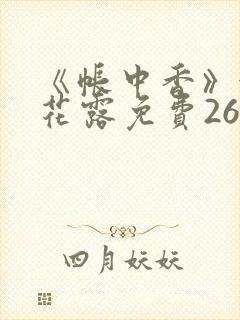 《帳中香》
花露免費26
四月妖妖